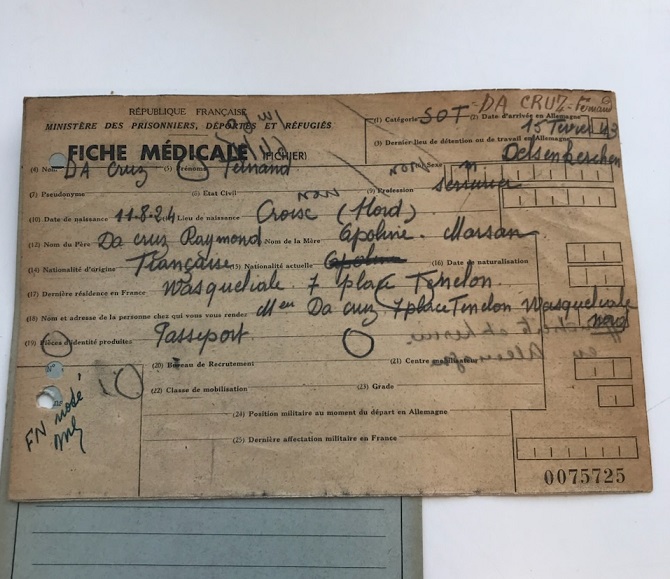 RÉPUBLIQUE FRANÇAISE
MINISTÈRE DES PRISONNIERS, DÉPORTÉS ET RÉFUGIÉS
FICHE MÉDICALE (FICHIER)
DA CRUZ - Fernand
(1) Catégorie SOT (2) Date d'arrivée en Allemagne 15 Fevrier 43
(3) Dernier lieu de détention ou travail en Allemagne
Delsenkerschen
(4) Nom DA Cruz (5) Prénoms Fernand Sexe m
(7) Pseudonyme (8) Etat Civil non (9) Profession serrurier
(10) Date de naissance 11.8.24 Lieu de naissance Croise (Nord)
(12) Nom du Père Da cruz Raymond Nom de la Mère Apoline. Marsan
(14) Nationalité d'origine Française (15) Nationalité actuelle (16) Date de naturalisation
(17) Dernière résidence en France Wasquehale. 7 place Tenelon
(18) Nom et adresse de la personne chez qui vous vous rendez Da cruz 7 place Tenelon Wasquehale
Nord
(19) Pièces d'identité produites Passeport
(20) Bureau de Recrutement (21) Centre mobilisateur
(22) Classe de mobilisation (23) Grade
(24) Position militaire au moment du départ en Allemagne
(25) Dernière affectation militaire en France
FN
0075725